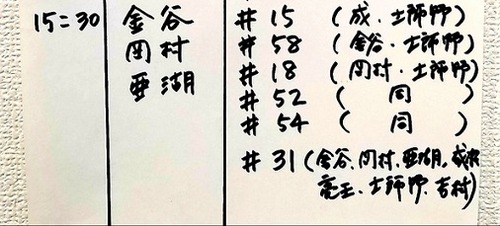 15:30 金谷 # 15 (成・土師野)
岡村 # 58 (金谷・土師野)
亜湖 # 18 (岡村・土師野)
# 52 ( 同 )
# 54 ( 同 )
# 31 (金谷、岡村、亜湖、成
土師野、吉村)